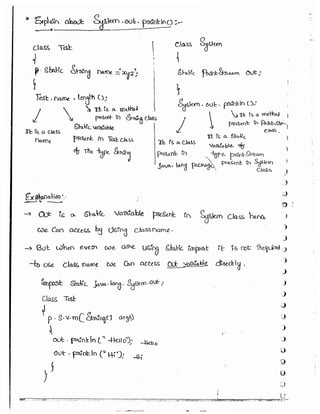 * Explain about System.out.println() :-
class Test
{
p static String name = "xyz";
}
Test.name.length();
It is a class name
static variable present in Test class of the type String
It is a method present in String class
class System
{
static PrintStream out;
}
System.out.println();
It is a class present in java.lang package
It is a static variable of type PrintStream present in System class
It is a method present in PrintStream class.
Explanation:-
→ Out is a static variable present in System class hence
we can access by using classname.
→ But when ever we are using static import it is not required
to use class name we can access out variable directly.
import static java.lang.System.out;
class Test
{
p.s.v.m(String[] args)
{
out.println("Hello"); Hello
out.println("Hi"); Hi
}
}